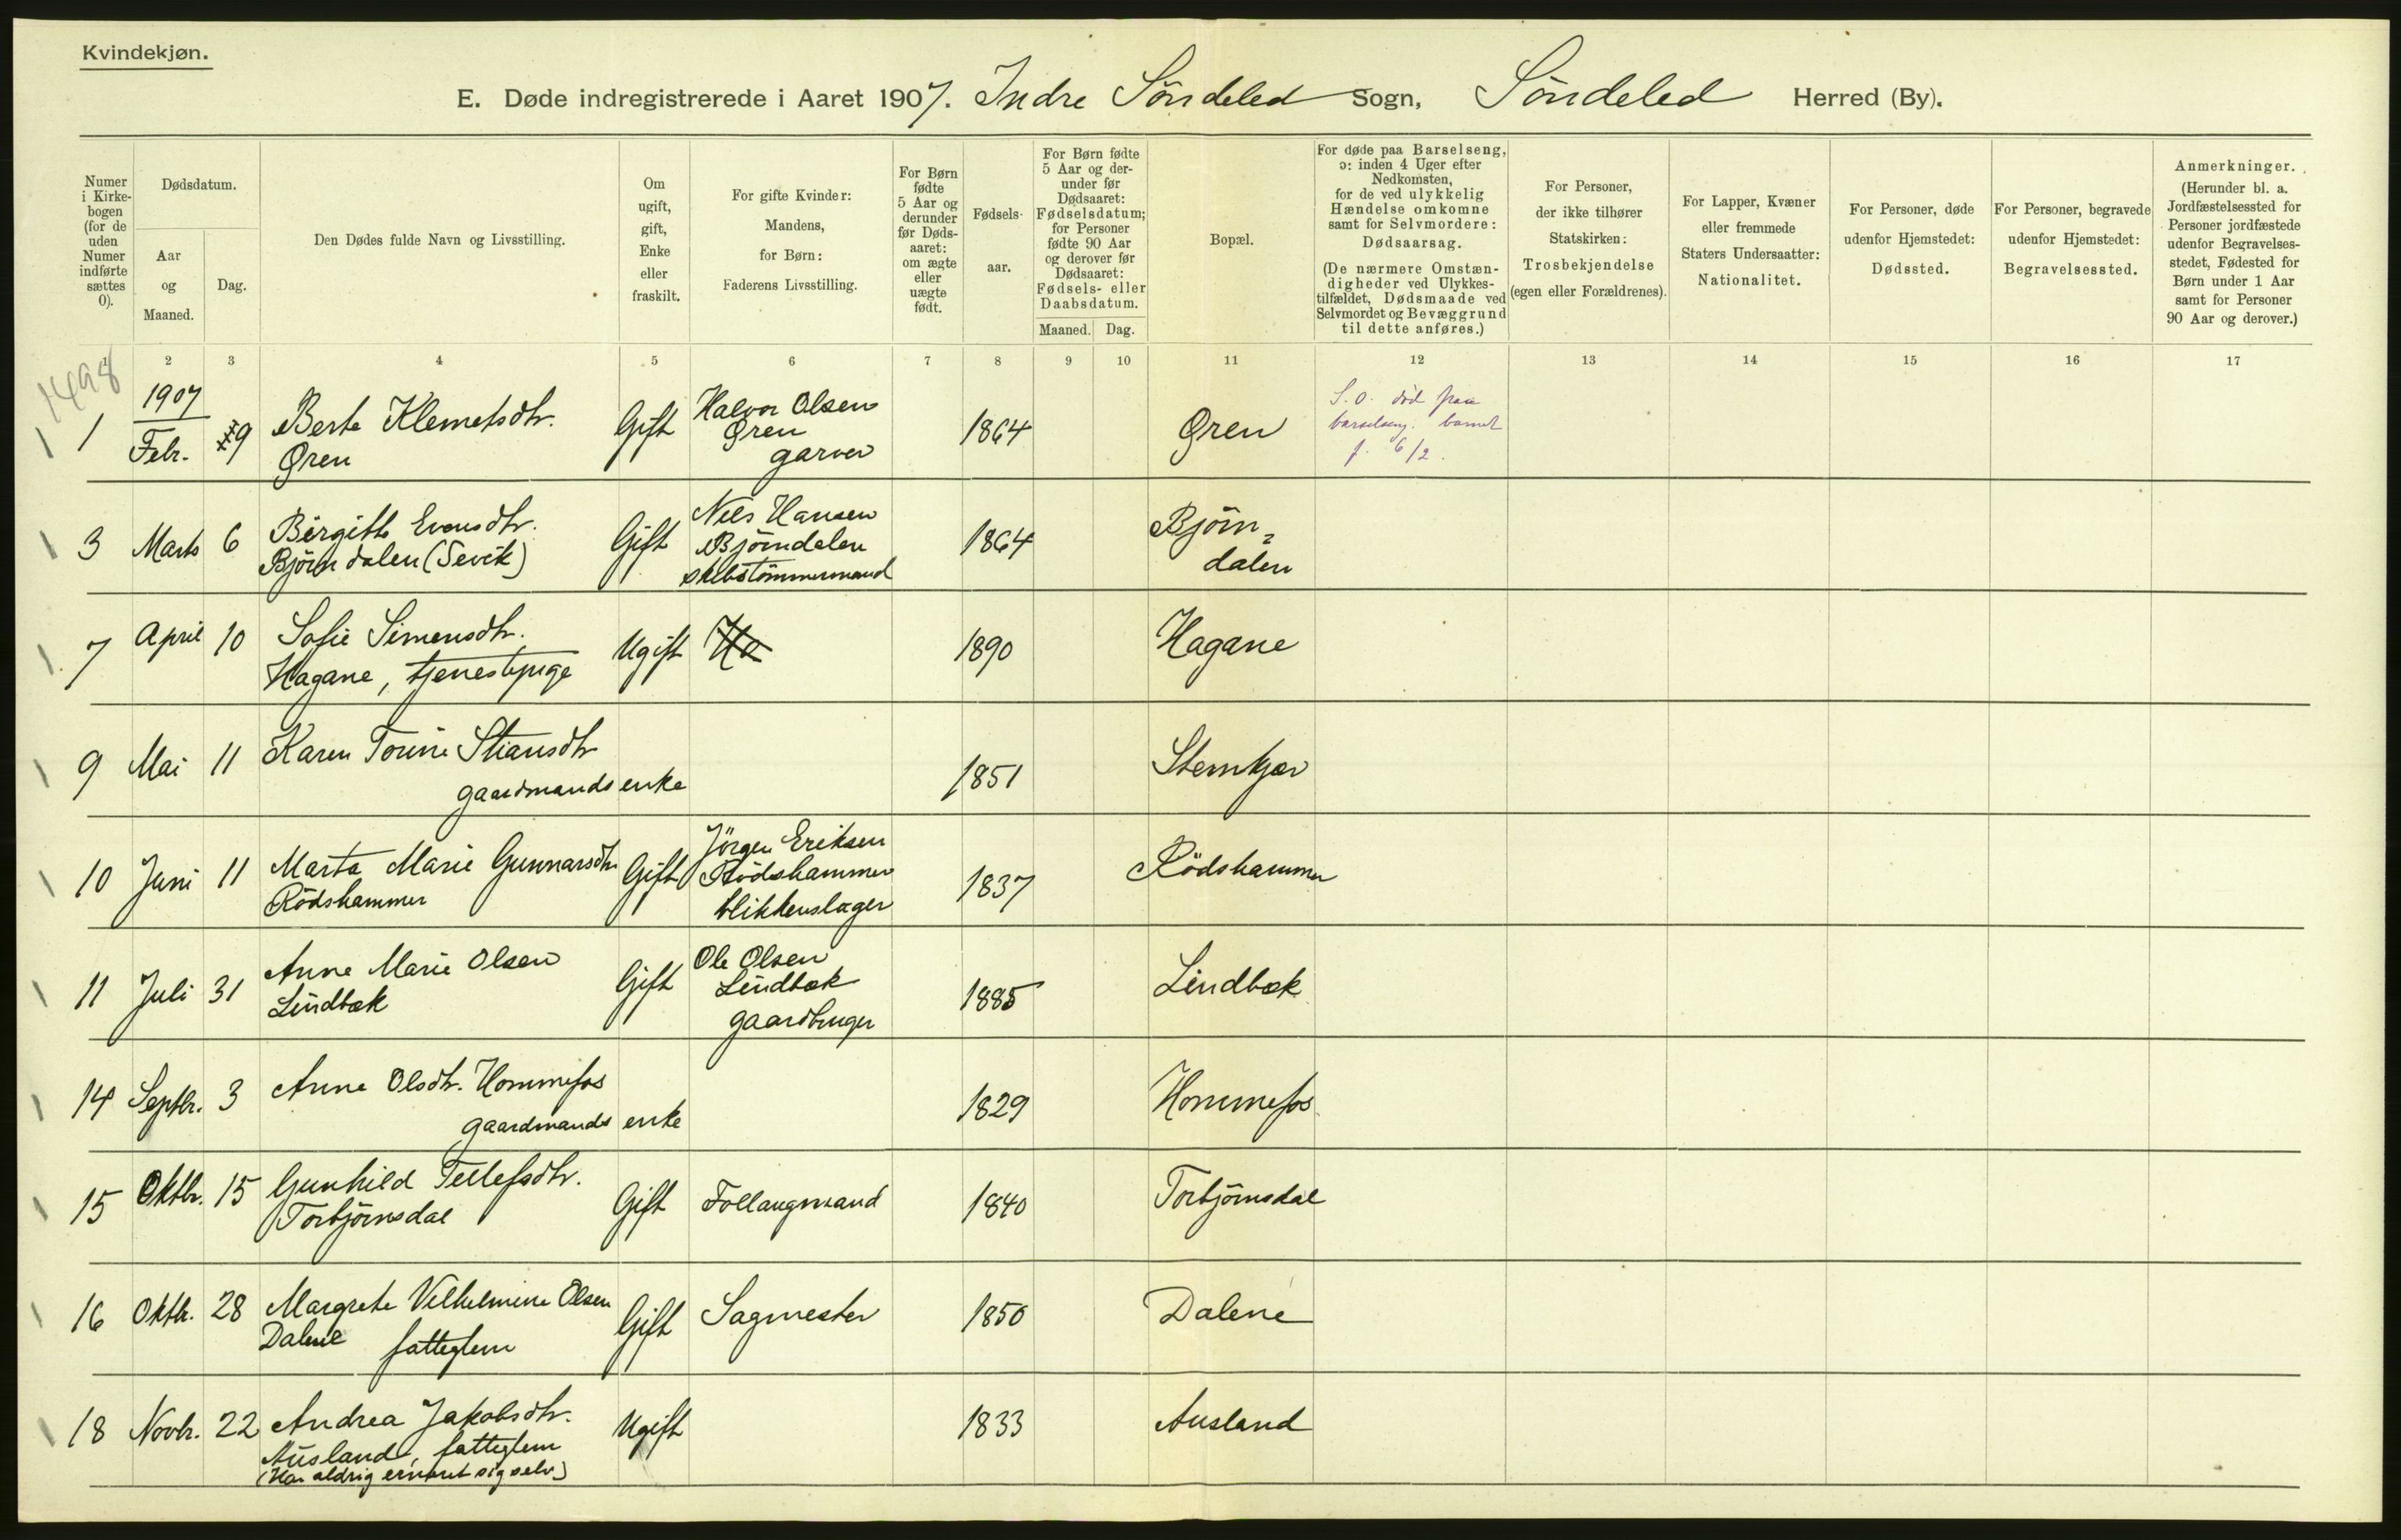 Kvindekjøn.
E. Døde indregistrerede i Aaret 1907. Indre Söndeled Sogn, Söndeled Herred (By).
Numer i Kirkebogen (for de uden Numer indførte sættes 0).
Dødsdatum.
Aar og Maaned.
Dag.
Den Dødes fulde Navn og Livsstilling.
Om ugift, gift, Enke eller fraskilt.
For gifte Kvinder: Mandens, for Børn: Faderens Livsstilling.
For Børn fødte 5 Aar og derunder før Dødsaaret: om ægte eller uægte født.
Fødselsaar.
For Børn fødte 5 Aar og derunder før Dødsaaret: Fødselsdatum; for Personer fødte 90 Aar og derover før Dødsaaret: Fødsels- eller Daabsdatum.
Maaned. Dag.
Bopæl.
For døde paa Barselseng, ɔ: inden 4 Uger efter Nedkomsten, for de ved ulykkelig Hændelse omkomne samt for Selvmordere: Dødsaarsag.
(De nærmere Omstændigheder ved Ulykkestilfældet, Dødsmaade ved Selvmordet og Bevæggrund til dette anføres.)
For Personer, der ikke tilhører Statskirken: Trosbekjendelse (egen eller Forældrenes).
For Lapper, Kvæner eller fremmede Staters Undersaatter: Nationalitet.
For Personer, døde udenfor Hjemstedet: Dødssted.
For Personer, begravede udenfor Hjemstedet: Begravelsessted.
Anmerkninger.
(Herunder bl. a. Jordfæstelsessted for Personer jordfæstede udenfor Begravelsesstedet, Fødested for Børn under 1 Aar samt for Personer 90 Aar og derover.)
1 2 3 4 5 6 7 8 9 10 11 12 13 14 15 16 17
1498
1 1907 Febr. 9 Berte Klemetsdtr. Øren Gift Halvor Olsen Øren garver 1864 Øren S.O. død paa barselseng. barnet f. 6/2.
3 Marts 6 Birgitte Evensdtr. Björndalen (Sevik) Gift Nils Hansen Björndalen skibstömmermand 1864 Björndalen
7 April 10 Sofie Simensdtr. Hagane, tjenestepige Ugift Ha 1890 Hagane
9 Mai 11 Karen Tomine Stiansdtr gaardmandsenke 1851 Stemkjær
10 Juni 11 Marta Marie Gunnarsdtr Rödshammer Gift Jörgen Eriksen Rödshammer blikkenslager 1837 Rödshammer
11 Juli 31 Anne Marie Olsen Lindbæk Gift Ole Olsen Lindbæk gaardbruger 1885 Lindbæk
14 Septbr. 3 Anne Olsdtr. Hommefos gaardmands enke 1829 Hommefos
15 Oktbr. 15 Gunhild Tellefsdtr. Torbjörnsdal Gift Follaugsmand 1840 Torbjörnsdal
16 Oktbr. 28 Margrete Vilhelmine Olsen Dalene fattiglem Gift Sagmester 1850 Dalene
18 Novbr. 22 Andrea Jakobsdtr. Ausland, fattiglem (Har aldrig ernæret sig selv) Ugift 1833 Ausland